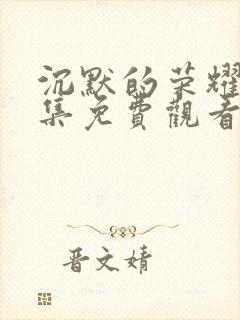 沉默的荣耀
集免費觀看
晋文婧